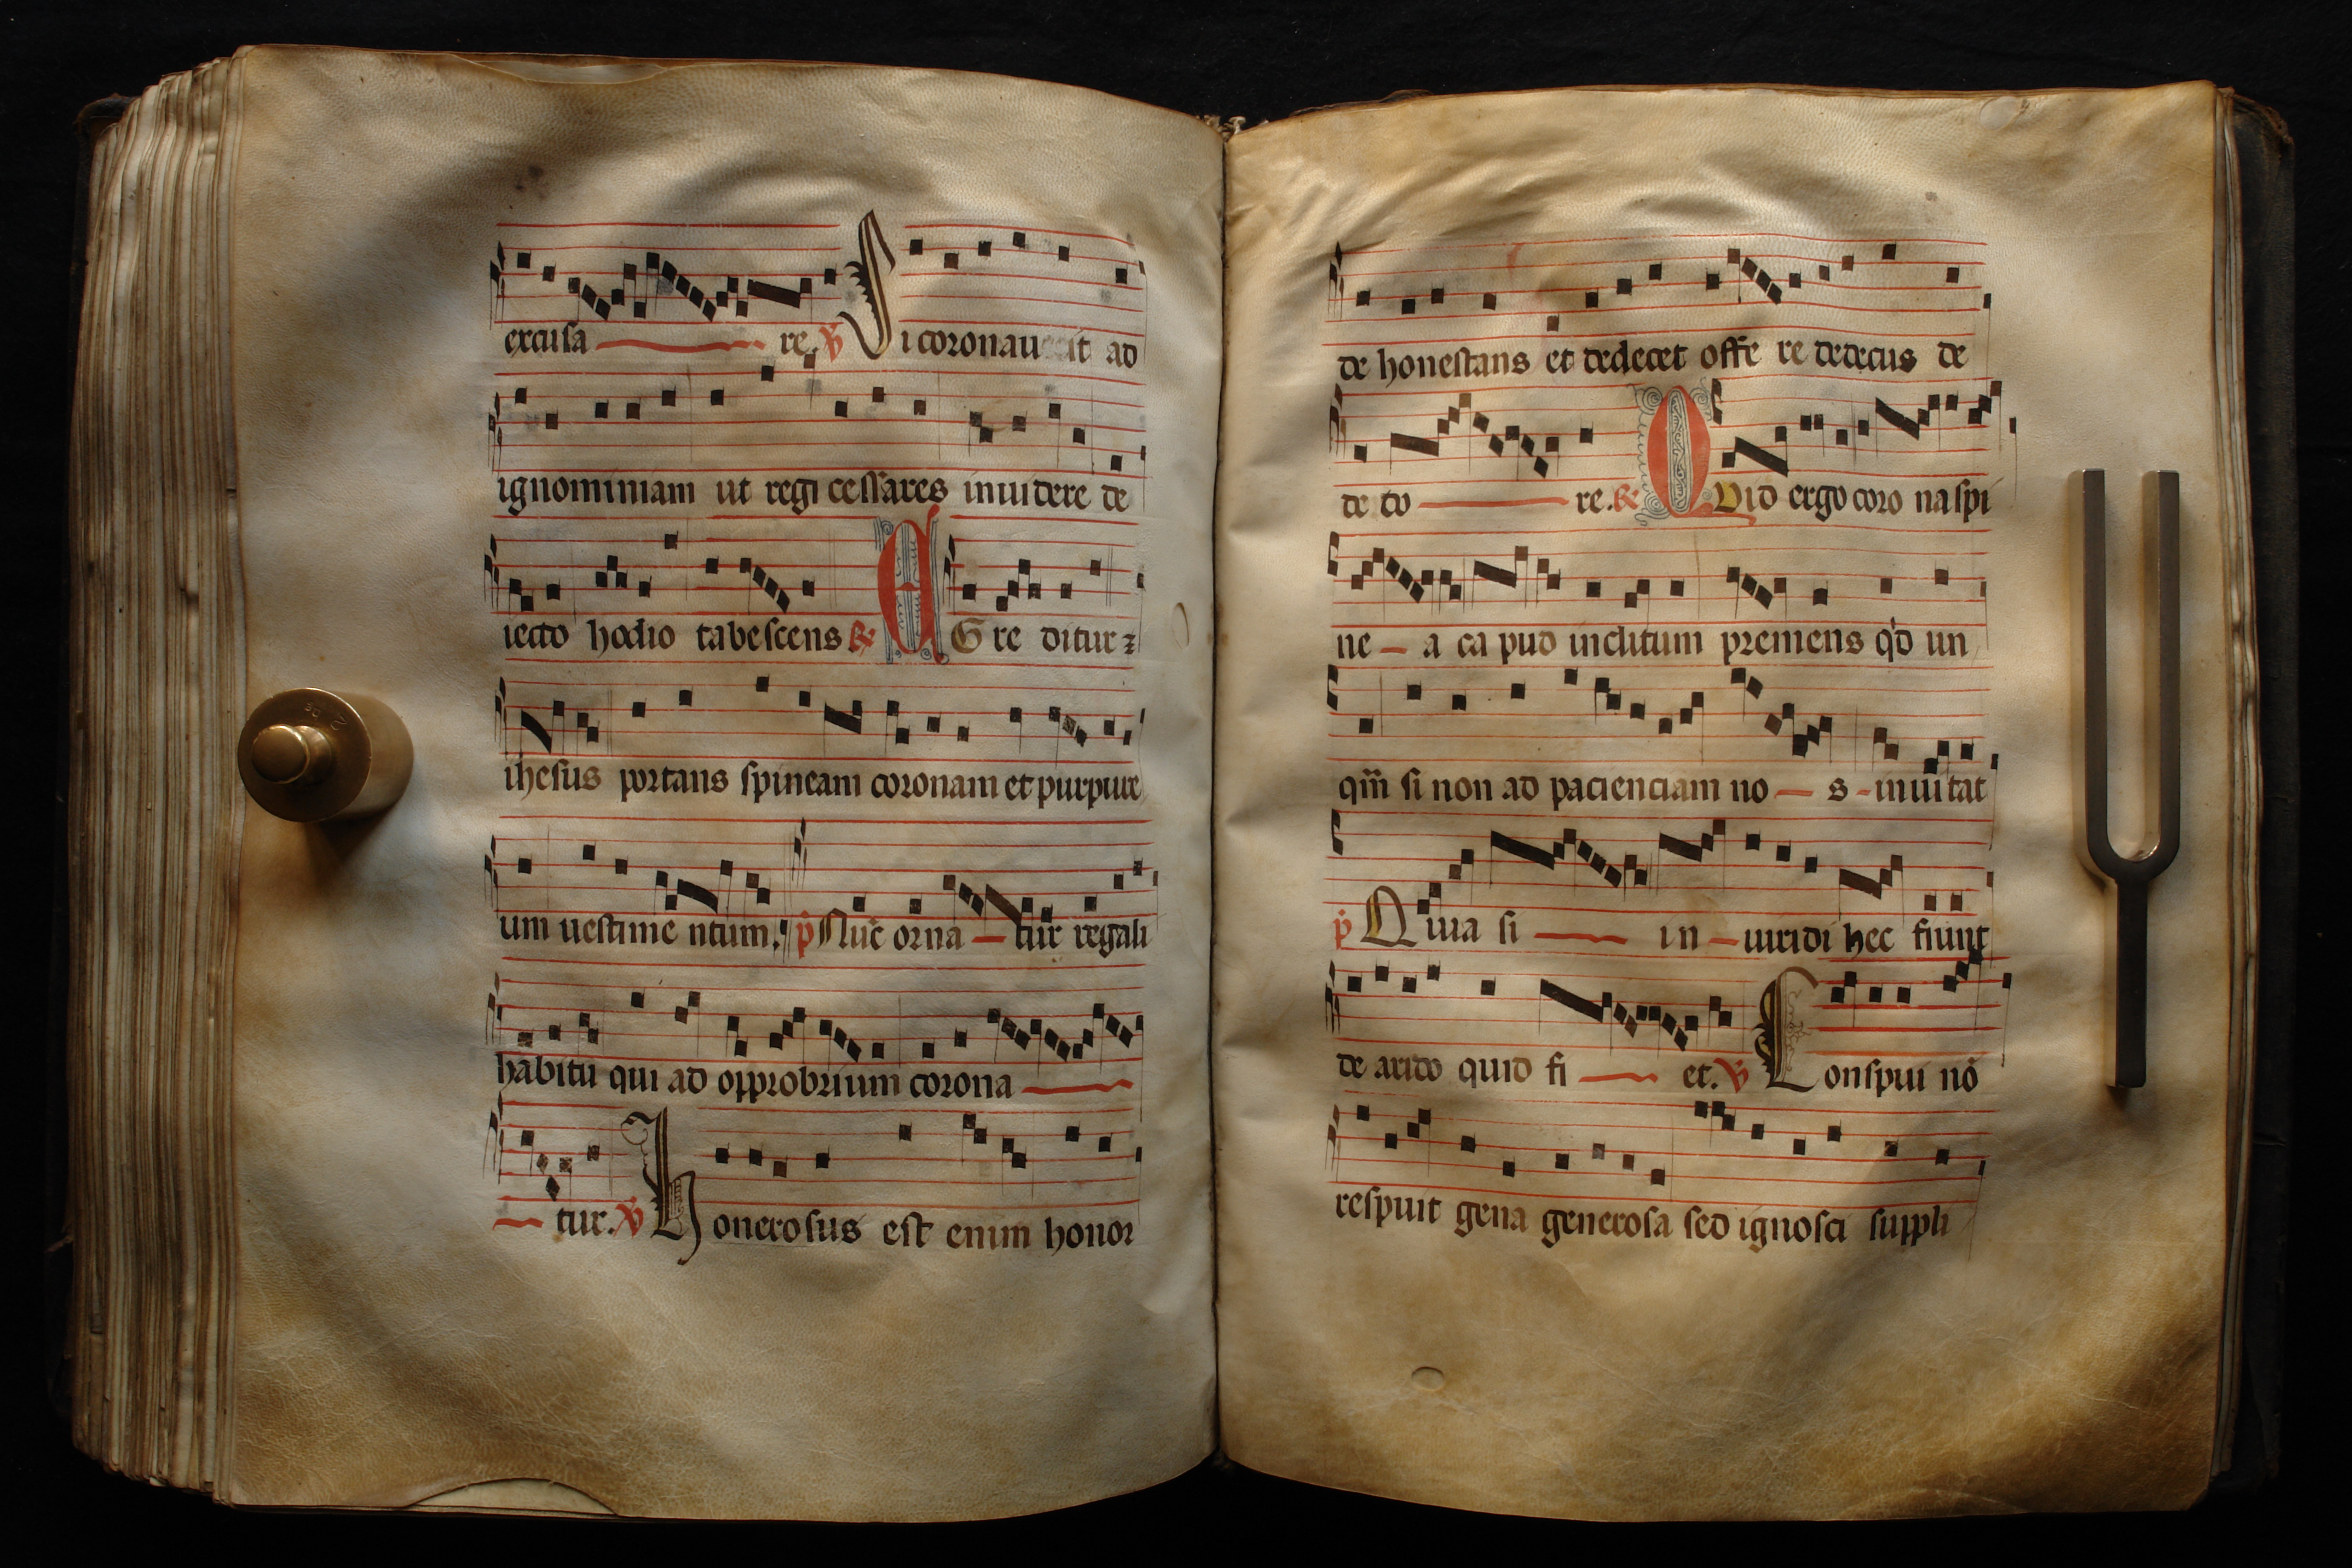 excusa re. ℣ Si coronau it ad
ignominiam ut regi cessares inuidere de
iecto hodio tabescens ℟ EGre ditur ⁊
ihesus portans spineam coronam et purpure
um uestime ntum. p̃ Nuc̃ orna tur regali
habitu qui ad opprobrium corona
tur. ℣ honerosus est enim honor
de honestans et dedecet offe re dedecus de
de co re. ℟ QVid ergo coro na spi
ne a ca pud inclitum premens qd̓ un
qm̃ si non ad pacienciam no s inuitat
p̃ Quia si in uiridi hec fiunt
de arido quid fi et. ℣ Conspui nõ
respuit gena generosa sed ignosci suppli